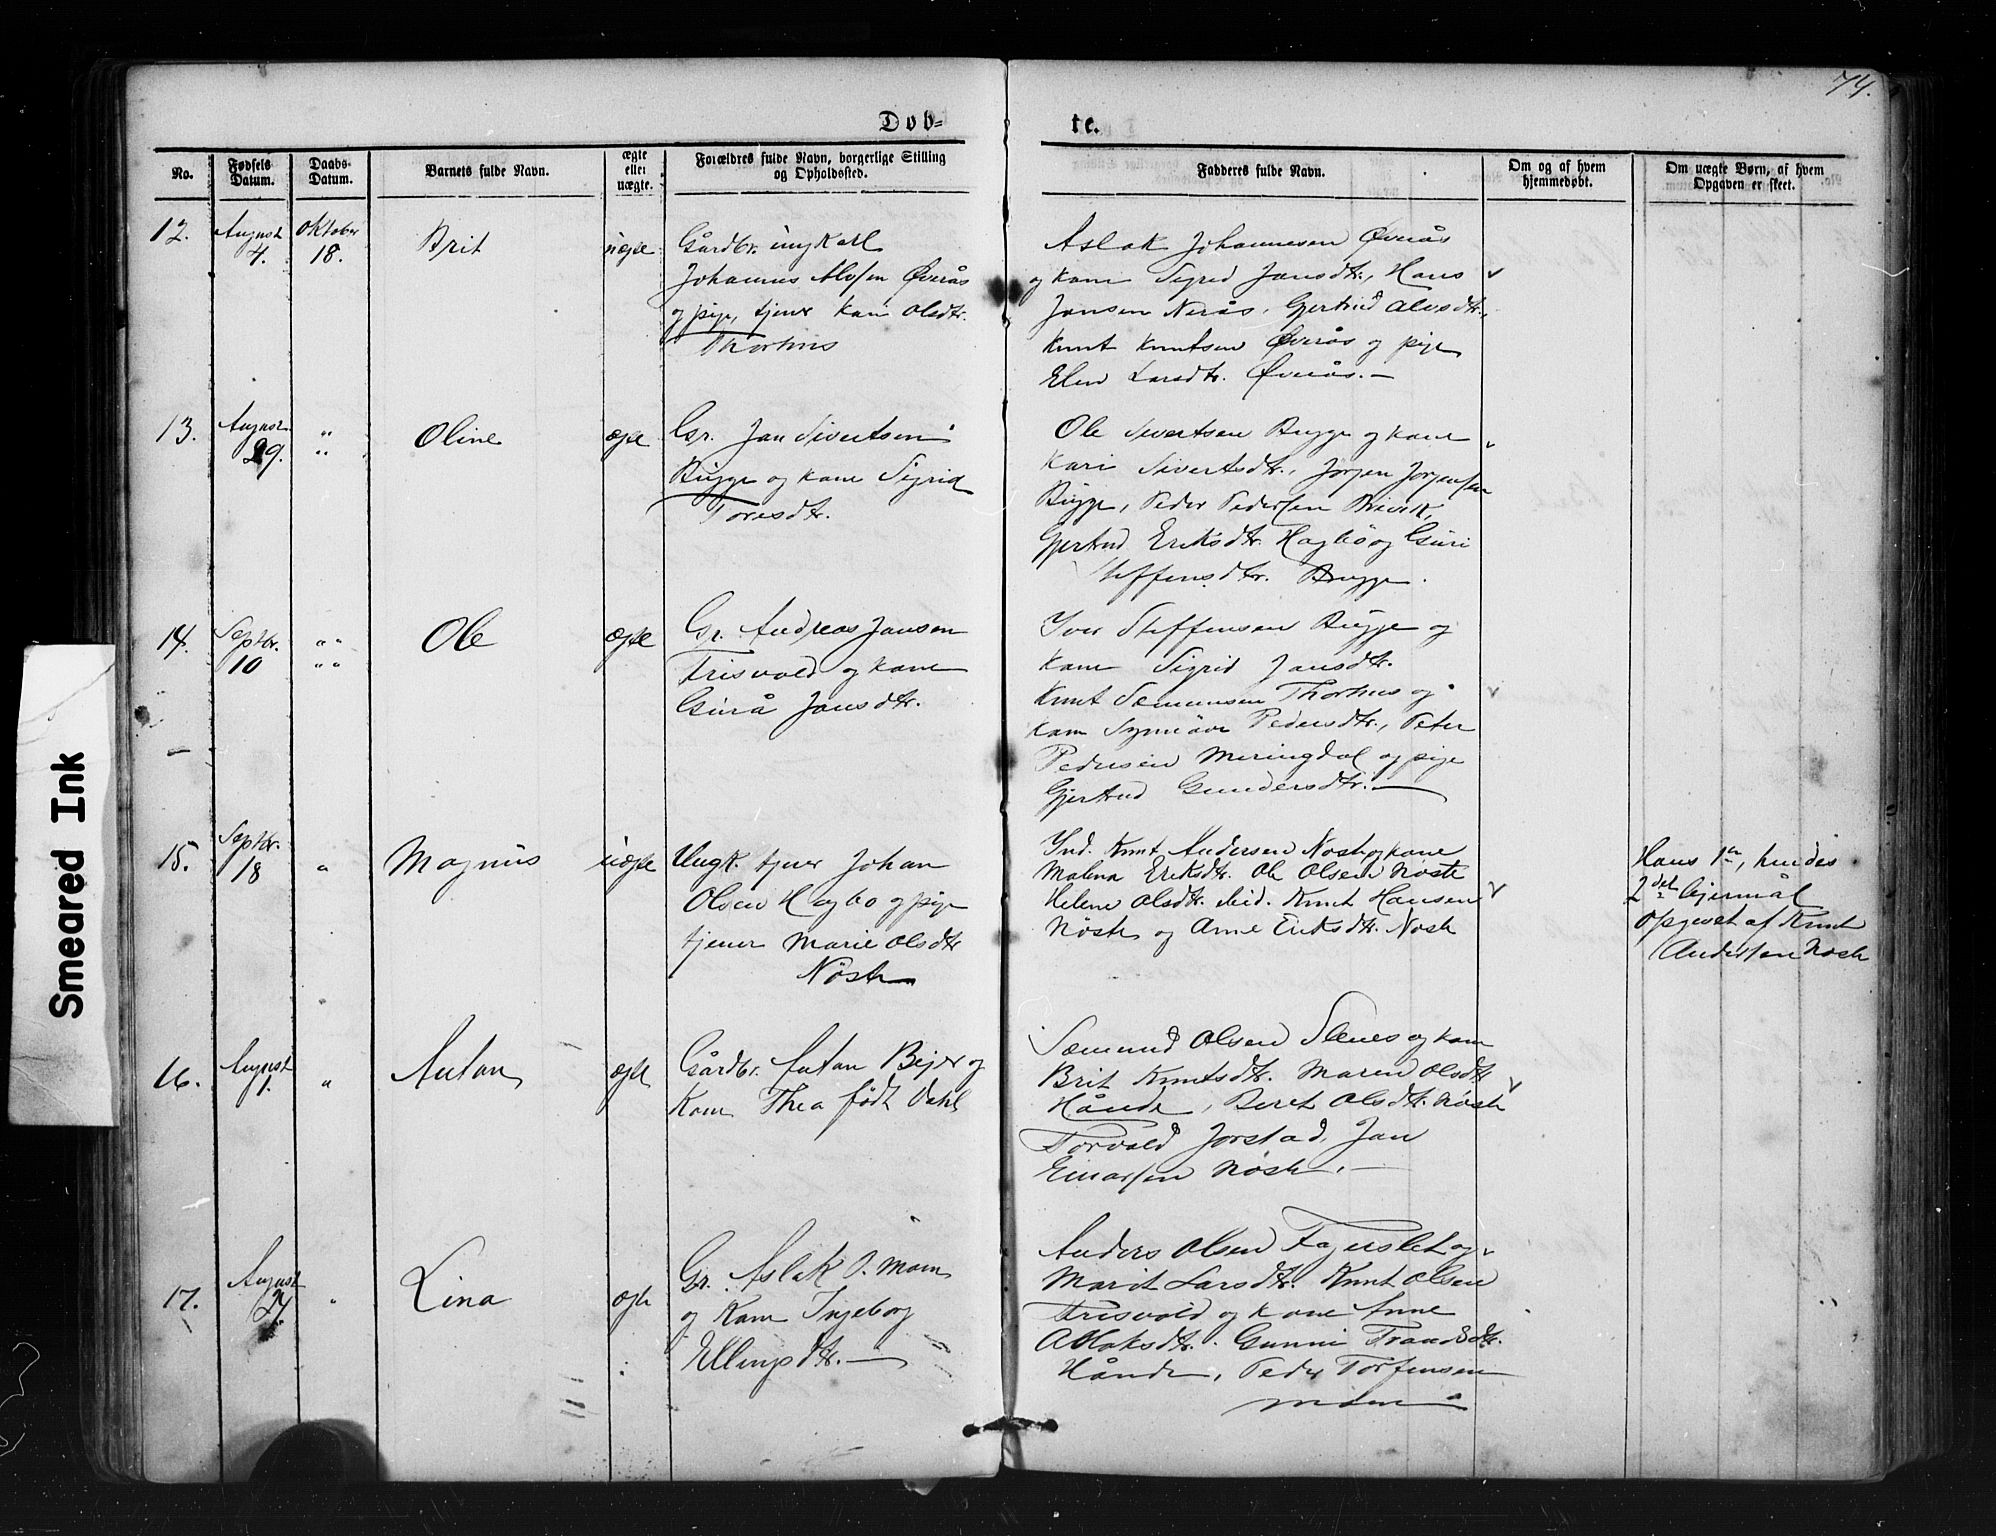 74.
Døb-
te.
No.
Fødsels Datum.
Daabs-Datum.
Barnets fulde Navn.
ægte eller uægte.
Forældres fulde Navn, borgerlige Stilling og Opholdssted.
Fadderes fulde Navn.
Om og af hvem hjemmedøbt.
Om uægte Børn, af hvem Opgaven er skeet.
12.
August 4.
Oktober 18.
Brit
uægte
Gårdbr. ungkarl
Johannes Alofsen Øverås
og pige, tjener Kari Olsdtr.
Thorhus
Aslak Johannesen Øverås
og kone Sigrid Jansdtr., Hans
Jansen Nerås, Gjertrud Olvsdtr.
Knut Knutsen Øverås og pige
Elen Larsdtr. Øverås.—
13.
August 29.
" "
Oline
ægte
Gr. Jan Sivertsen
Bugge og kone Sigrid
Toresdtr.
Ole Sivertsen Bugge og kone
Kari Sivertsdtr., Jørgen Jørgensen
Bugge, Peder Pedersen Brevik,
Gjertrud Eriksdtr. Hagbø og Guri
Steffensdtr. Bugge.
14.
Septbr. 10
" "
Ole
ægte
Gr. Andreas Jansen
Frisvold og kone
Gurå Jansdtr.
Iver Steffensen Bugge og
kone Sigrid Jansdtr.
Knut Sæmunsen Thorhus og
kone Synnøve Pedersdtr., Peter
Pedersen Meringdal og pige
Gjertrud Gundersdtr.—
15.
Septbr. 18
"
Magnus
uægte
Ungk. tjener Johan
Olsen Hagbø og pige
tjener Marie Olsdtr
Nøste
Ind. Knut Andersen Nøste og kone
Malena Eriksdtr. Ole Olsen Nøste
Helene Olsdtr. ibid. Knut Hansen
Nøste og Anne Eriksdtr. Nøste
Hans 1ste, hendes
2det leiermål
opgivet af Knut
Andersen Nøste
16.
August 1.
"
Anton
ægte
Gårdbr. Anton Bejer og
Kone Thea født Dahl
Sæmund Olsen Slenes og kone
Brit Knutsdtr. Maren Olsdtr
Hånde, Beret Olsdtr. Nøste
Torvald Jorstad, Jan
Einarsen Nøste.—
17.
August 27.
"
Lina
ægte
Gr. Aslak O. Moen
og Kone Ingeborg
Ellingsdtr.—
Anders Olsen Fagerslet og
Marit Larsdtr. Knut Olsen
Frisvold og kone Anne
Aslaksdtr. Gunni Trondsdtr.
Hånde, Peder Torfinsen
Moen
Smeared Ink